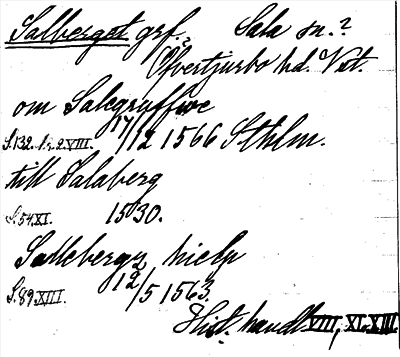 Salberget grf. Sala sn.?
Öfvertjurbo hd. Vst.
om Salegruffwe
S.132. 17/12 1566 Sthlm.
till Salaberg
S.54 XI. 1530.
Sallebergz hielp
S.89. XIII. 12/5 1563.
Hist. handl. VIII, XI, XIII.